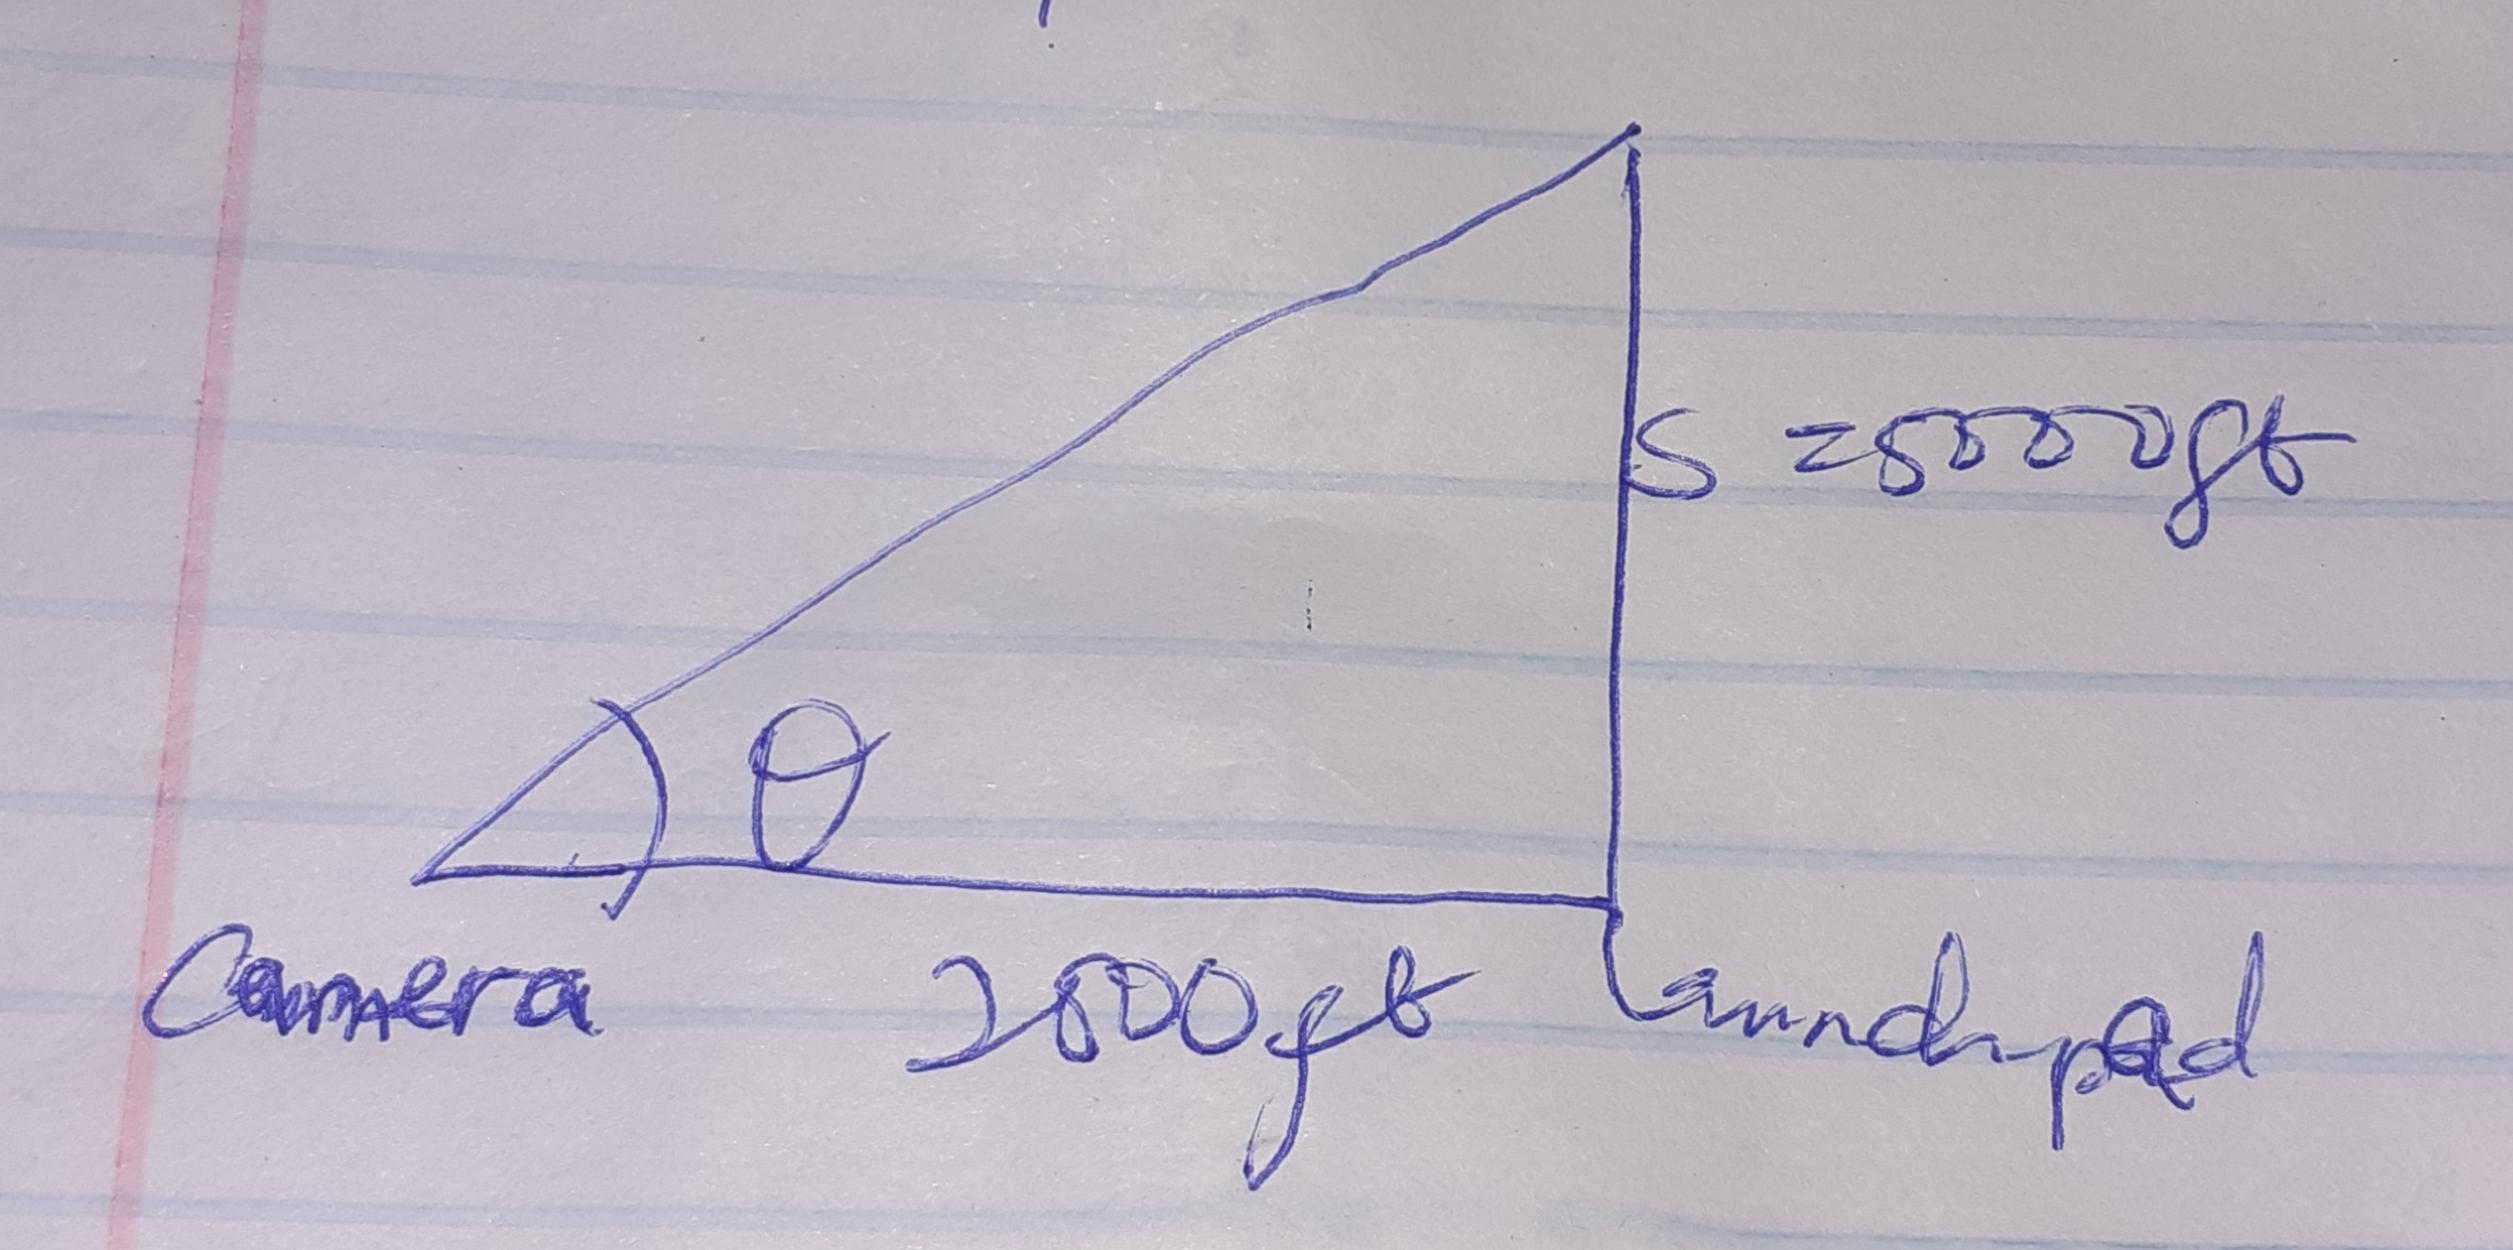 S = 5000ft
θ
Camera 2500ft Launch pad